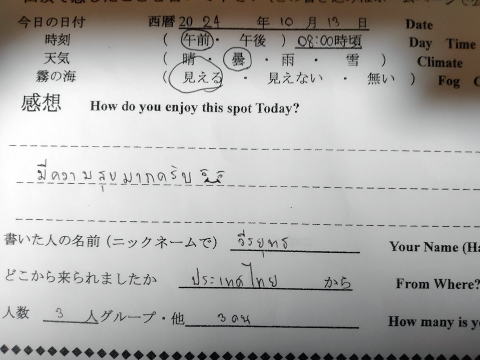 今日の日付 西暦 2024 年 10 月 13 日 Date
時刻 ( 午前・ 午後 ) 08:00時頃 Day Time
天気 ( 晴・曇・雨・雪 ) Climate
霧の海 ( 見える ・ 見えない ・ 無い ) Fog
感想 How do you enjoy this spot Today?
มีความสุขมากครับ
書いた人の名前(ニックネームで) วีรยุทธ Your Name (Ha
どこから来られましたか ประเทศไทย から From Where?
人数 3 人グループ・他 3 คน How many is y